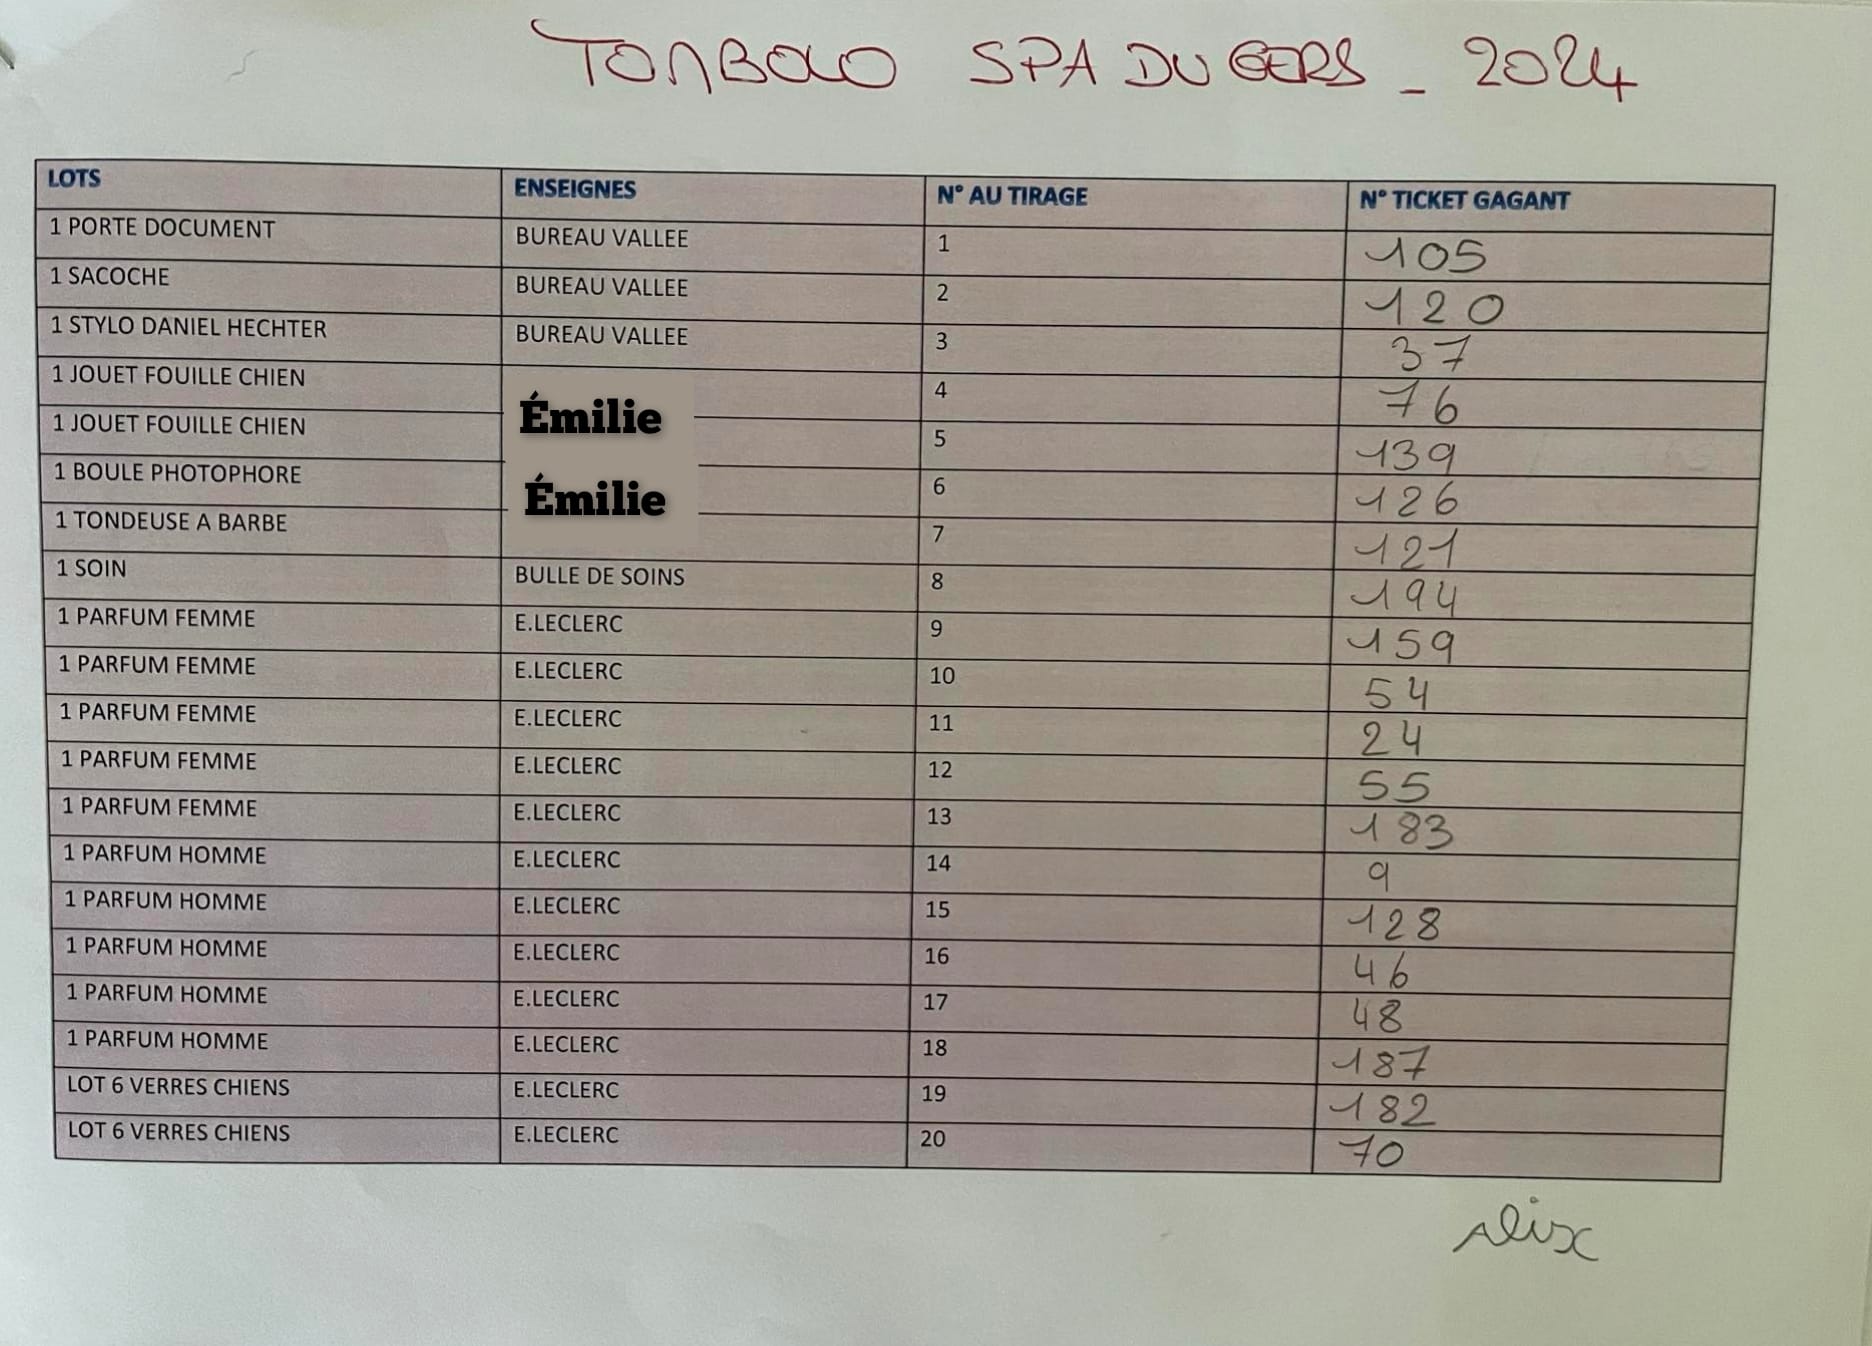 TOMBOLO SPA DU GERS - 2024
LOTS ENSEIGNES N° AU TIRAGE N° TICKET GAGANT
1 PORTE DOCUMENT BUREAU VALLEE 1 105
1 SACOCHE BUREAU VALLEE 2 120
1 STYLO DANIEL HECHTER BUREAU VALLEE 3 37
1 JOUET FOUILLE CHIEN Émilie 4 76
1 JOUET FOUILLE CHIEN 5 139
1 BOULE PHOTOPHORE Émilie 6 126
1 TONDEUSE A BARBE 7 121
1 SOIN BULLE DE SOINS 8 194
1 PARFUM FEMME E.LECLERC 9 159
1 PARFUM FEMME E.LECLERC 10 54
1 PARFUM FEMME E.LECLERC 11 24
1 PARFUM FEMME E.LECLERC 12 55
1 PARFUM FEMME E.LECLERC 13 183
1 PARFUM HOMME E.LECLERC 14 9
1 PARFUM HOMME E.LECLERC 15 128
1 PARFUM HOMME E.LECLERC 16 46
1 PARFUM HOMME E.LECLERC 17 48
1 PARFUM HOMME E.LECLERC 18 187
LOT 6 VERRES CHIENS E.LECLERC 19 182
LOT 6 VERRES CHIENS E.LECLERC 20 70
Alix